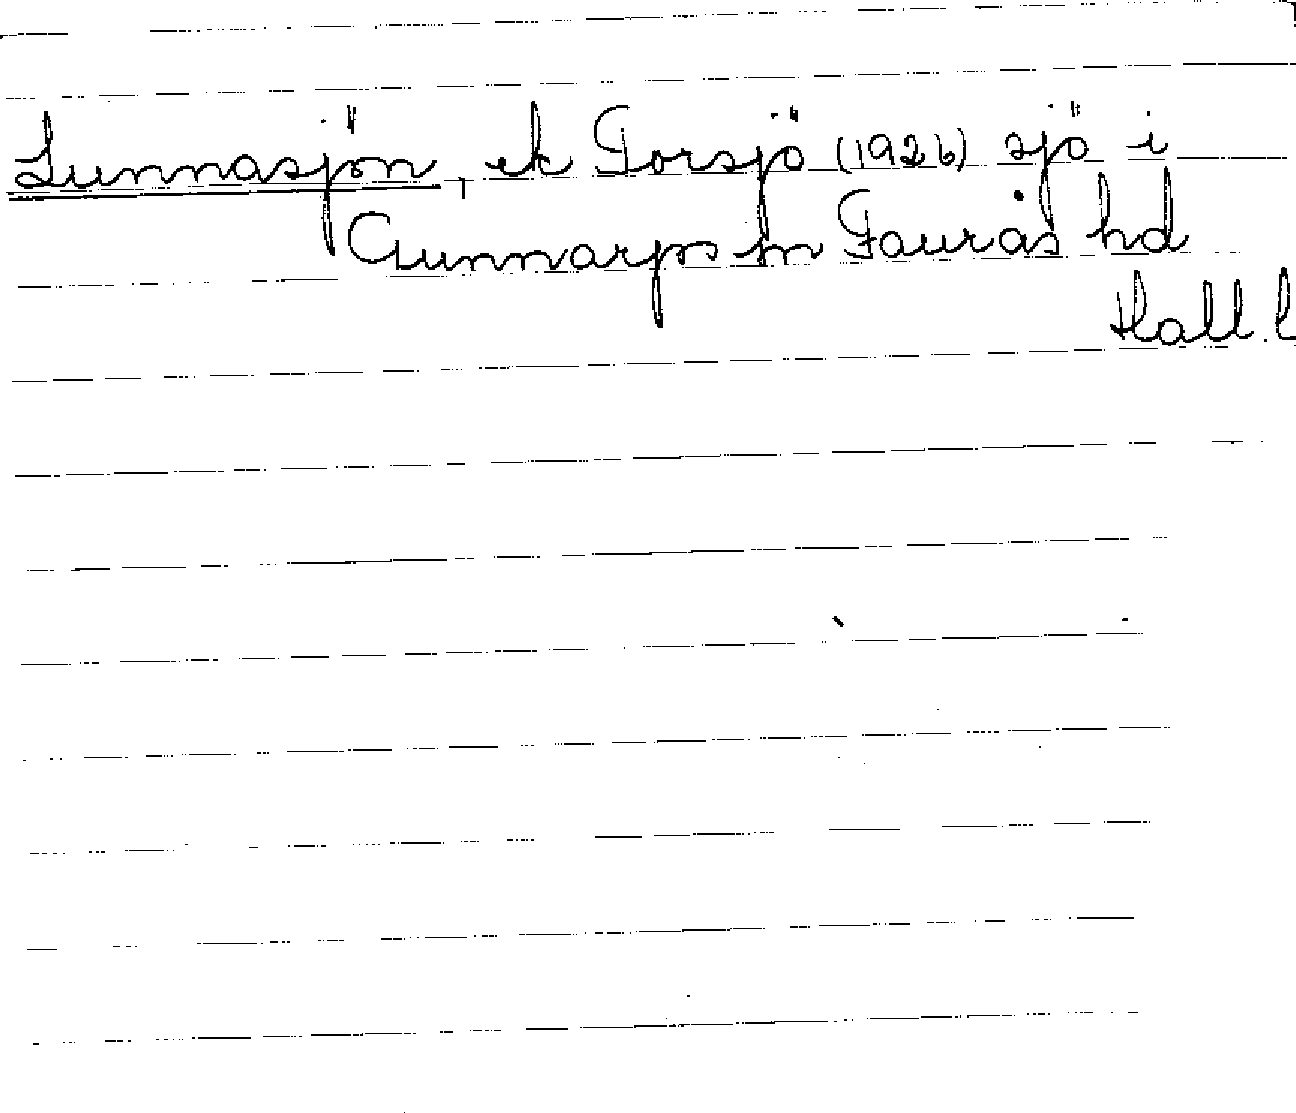 Lunnasjön, ek Torsjö (1926) sjö i
Gunnarps sn Faurås hd
Hall. l